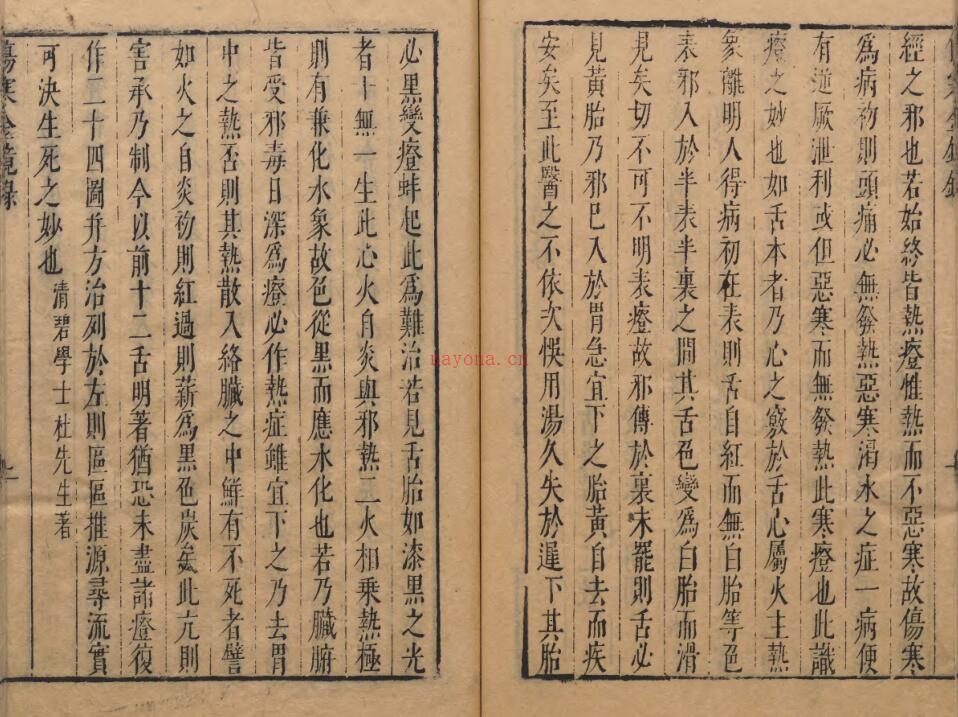 經之邪也若始終皆熱癥惟熱而不惡寒故傷寒
爲病初則頭痛必無發熱惡寒渴水之症一病便
有逆厥泄利或但惡寒而無發熱此寒癥也此識
癥之妙也如舌本者乃心之竅於舌心屬火主熱
象離明人得病初在表則舌自紅而無白胎等色
表邪入於半表半裏之間其舌色變爲白胎而滑
見矣切不可不明表癥故邪傳於裏未罷則舌必
見黃胎乃邪已入於胃急宜下之胎黃自去而疾
安矣至此醫之不依次悞用湯久失於遲下其胎
必黑變癥蚌起此爲難治若見舌胎如漆黑之光
者十無一生此心火自炎與邪熱二火相乘熱極
則有兼化水象故色從黑而應水化也若乃臟腑
皆受邪毒日深爲癥必作熱症雖宜下之乃去胃
中之熱否則其熱散入絡臟之中鮮有不死者譬
如火之自炎初則紅過則薪爲黑色炭矣此亢則
害承乃制今以前十二舌明著猶恐未盡諸癥復
作二十四圖并方治列於左則區區推源尋流實
可決生死之妙也 清碧學士杜先生著
傷寒金鏡錄
nayona.cn